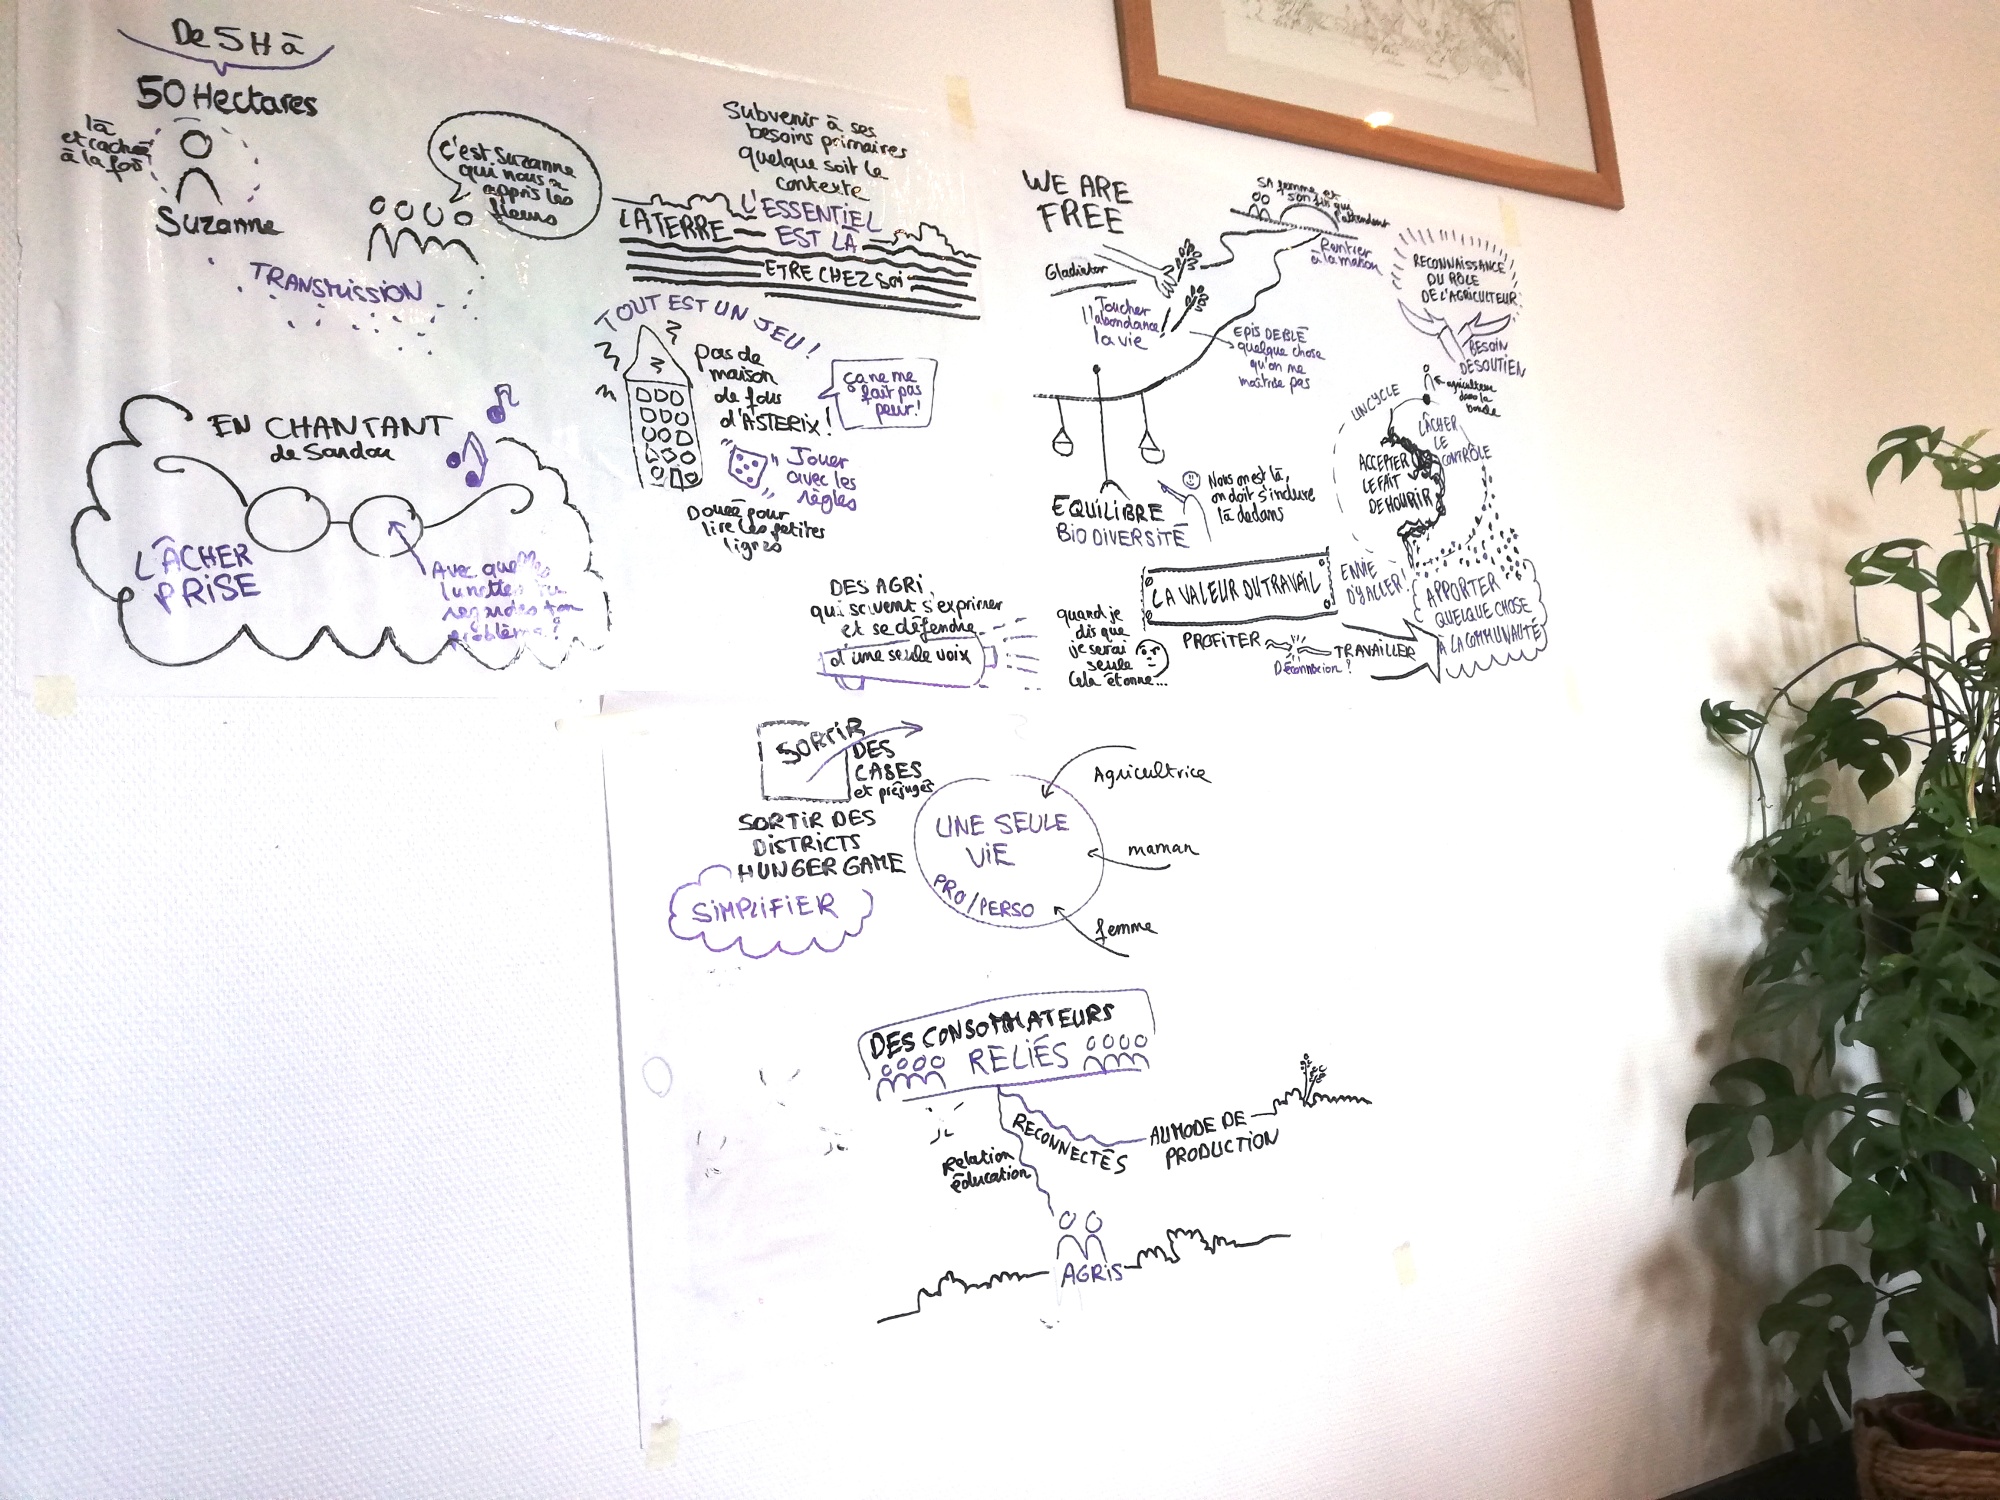 De 5H à
50 Hectares
là
et cachée
à la fois
Suzanne
c'est Suzanne
qui nous a
appris les
fleurs
TRANSMISSION
EN CHANTANT
de Sardou
LÂCHER
PRISE
Avec quelles
lunettes tu
regardes ton
problème?
Subvenir à ses
besoins primaires
quelque soit le
contexte
L'ESSENTIEL
LA TERRE
EST LÀ
ETRE CHEZ SOI
TOUT EST UN JEU!
pas de
maison
de fous
d'ASTERIX!
ça ne me
fait pas
peur!
Jouer
avec les
règles
Douée pour
lire les petites
lignes
DES AGRI
qui savent s'exprimer
et se défendre
d'une seule voix
WE ARE
FREE
Gladiator
Toucher
l'abondance!
la vie
SA femme et
son fils qui
l'attendent
Rentrer
à la maison
EPIS DE BLÉ
quelque chose
qu'on ne
maîtrise pas
RECONNAISSANCE
DU RÔLE
DE L'AGRICULTEUR
BESOIN
DE SOUTIEN
agriculteur
dans la
boucle
UN CYCLE
LÂCHER
LE
CONTRÔLE
ACCEPTER
LE FAIT
DE MOURIR
EQUILIBRE
BIODIVERSITÉ
Nous on est là,
on doit s'inclure
là dedans
LA VALEUR DU TRAVAIL
ENVIE
D'Y ALLER!
APPORTER
QUELQUE CHOSE
À LA COMMUNAUTÉ
quand je
dis que
je serai
seule
Cela étonne...
PROFITER
TRAVAILLER
Déconnexion?
SORTIR
DES
CASES
et préjugés
SORTIR DES
DISTRICTS
HUNGER GAME
SIMPLIFIER
UNE SEULE
VIE
PRO/PERSO
Agricultrice
maman
femme
DES CONSOMMATEURS
RELIÉS
RECONNECTÉS
AU MODE DE
PRODUCTION
Relation
éducation
AGRIS